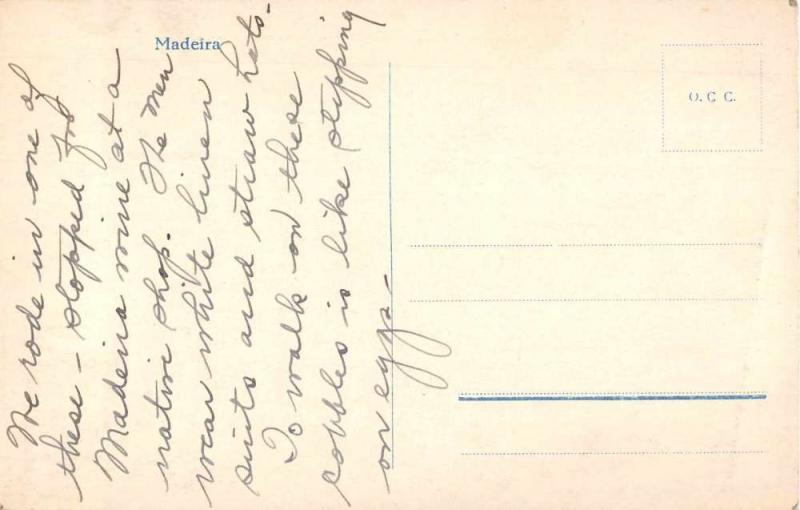 Madeira
O. C. C.
We rode in one of
these – stopped for
Madeira wine at a
native shop. The men
wear white linen
suits and straw hats.
To walk on these
cobbles is like stepping
on eggs –